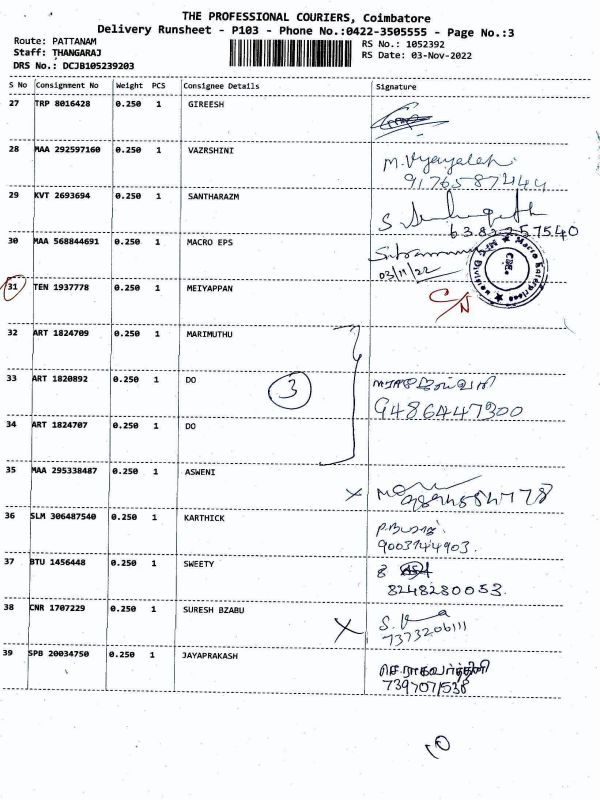 THE PROFESSIONAL COURIERS, Coimbatore
Delivery Runsheet - P103 - Phone No.:0422-3505555 - Page No.:3
Route: PATTANAM RS No.: 1052392
Staff: THANGARAJ RS Date: 03-Nov-2022
DRS No.: DCJB105239203
S No Consignment No Weight PCS Consignee Details Signature
27 TRP 8016428 0.250 1 GIREESH
28 MAA 292597160 0.250 1 VAZRSHINI
9176587444
29 KVT 2693694 0.250 1 SANTHARAZM
6382257540
30 MAA 568844691 0.250 1 MACRO EPS
03/11/22
31 TEN 1937778 0.250 1 MEIYAPPAN C/N
32 ART 1824709 0.250 1 MARIMUTHU
33 ART 1820892 0.250 1 DO 3
9486447300
34 ART 1824707 0.250 1 DO
35 MAA 295338487 0.250 1 ASWENI
36 SLM 306487540 0.250 1 KARTHICK
9003744903.
37 BTU 1456448 0.250 1 SWEETY
8248280053.
38 CNR 1707229 0.250 1 SURESH BZABU
7373206111
39 SPB 20034750 0.250 1 JAYAPRAKASH
7397071538